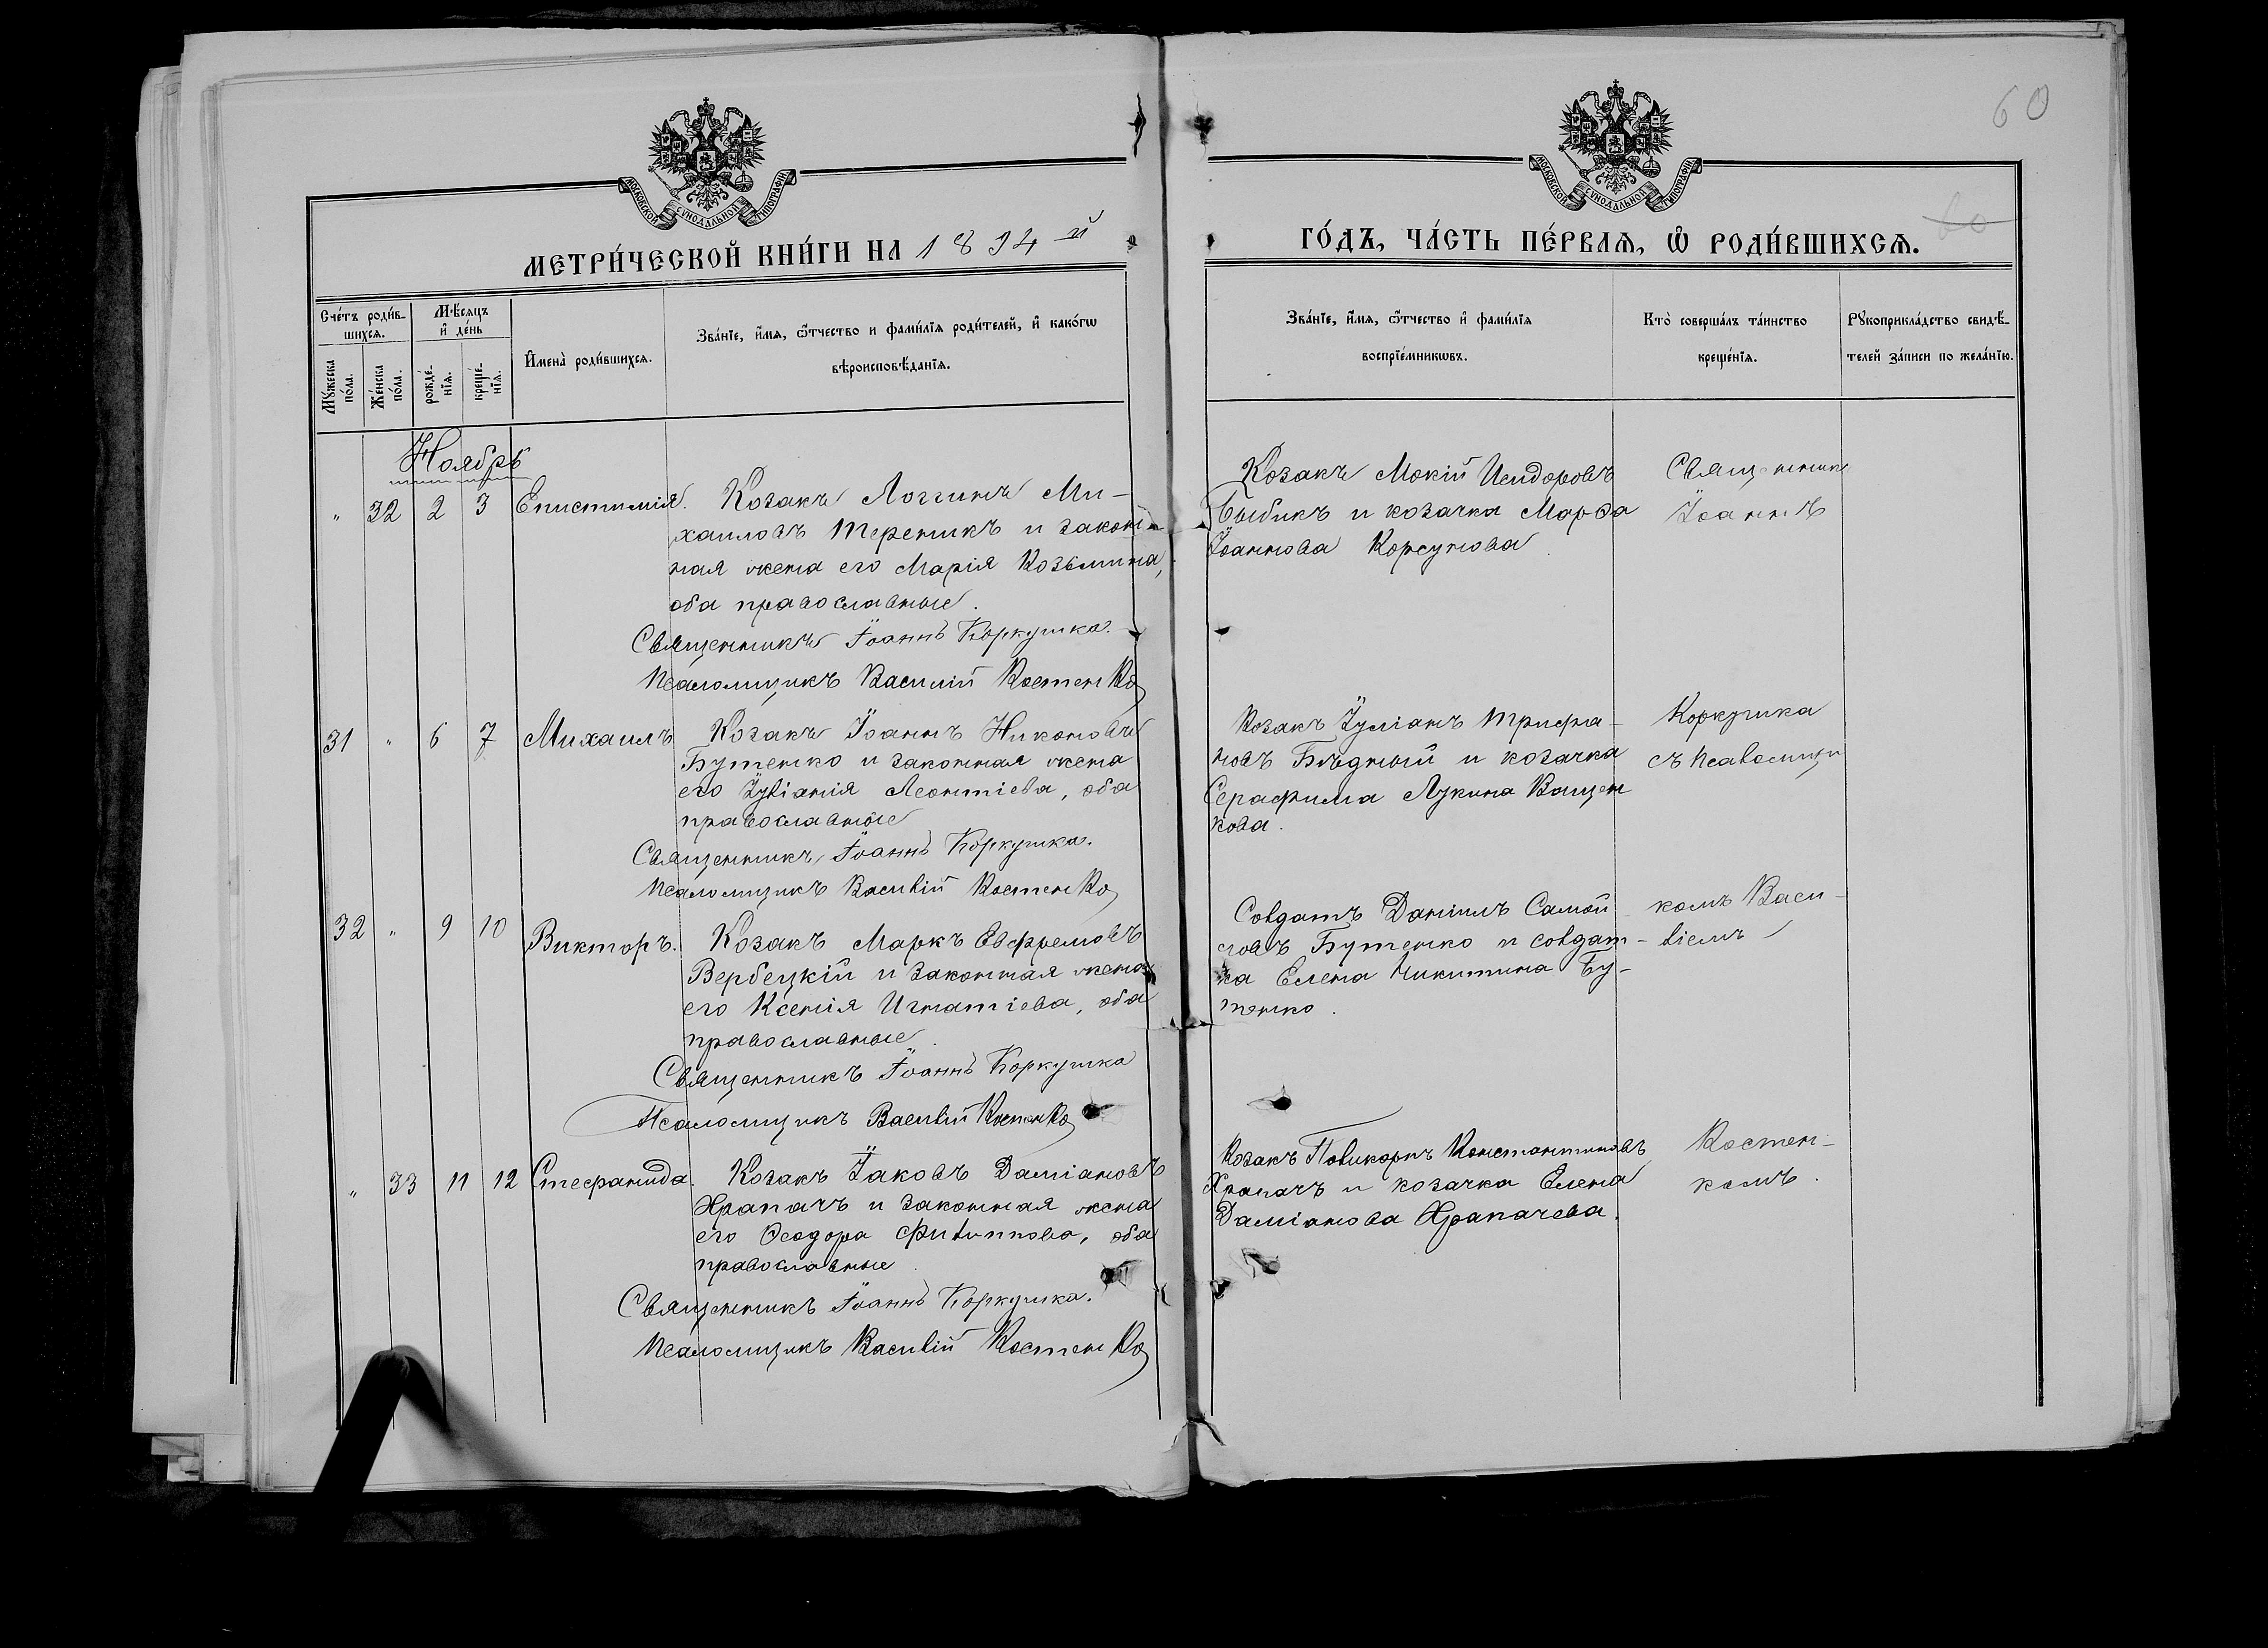 60
МОСКОВСКОЙ СѴНОДАЛЬНОЙ ТИПОГРАФІИ
МОСКОВСКОЙ СѴНОДАЛЬНОЙ ТИПОГРАФІИ
60
МЕТРИ́ЧЕСКОЙ КНИ́ГИ НА 1894 й
ГО́ДЪ, ЧА́СТЬ ПЕ́РВАѦ, Ѡ РОДИ́ВШИХСѦ.
Сче́тъ роди́в-
шихсѧ.
Мꙋжеска
по́ла.
Же́нска
по́ла.
Мѣ́сѧцъ
и де́нь
рожде́-
нїѧ.
креще́-
нїѧ.
Имена̀ роди́вшихсѧ.
Зва́нїе, и́мѧ, ѻ́тчество и фами́лїѧ роди́телей, и како́гѡ
вѣроисповѣ́данїѧ.
Зва́нїе, и́мѧ, ѻ́тчество и фами́лїѧ
воспрїе́мникѡвъ.
Кто̀ соверша́лъ та́инство
креще́нїѧ.
Рꙋкоприкла́дство свидѣ́-
телей за́писи по жела́нїю.
Ноябрь
" 32 2 3 Епистимія. Козакъ Логгинъ Ми-
хаиловъ Тереникъ и закон-
ная жена его Марія Козьмина,
оба православные.
Священникъ Іоаннъ Коркушка.
Псаломщикъ Василій Костенко
Козакъ Мокій Исидоровъ
Быбикъ и козачка Марфа
Іоаннова Корсунова.
Священникъ
Іоаннъ
31 " 6 7 Михаилъ Козакъ Іоаннъ Никоновъ
Бутенко и законная жена
его Іуліанія Леонтіева, оба
православные
Священникъ Іоаннъ Коркушка.
Псаломщикъ Василій Костенко
Козакъ Іуліанъ Трифа-
новъ Бѣдный и козачка
Серафима Лукина Ващен
кова.
Коркушка
съ Псаломщи
32 " 9 10 Викторъ. Козакъ Маркъ Евфремовъ
Вербецкій и законная жена
его Ксенія Игнатіева, оба
православные.
Священникъ Іоаннъ Коркушка
Псаломщикъ Василій Костенко
Солдатъ Даніилъ Самой
ловъ Бутенко и солдат-
ка Елена Никитина Бу-
тенко.
комъ Васи-
ліемъ
" 33 11 12 Стефанида. Козакъ Іаковъ Даміановъ
Храпачъ и законная жена
его Ѳеодора Филиппова, оба
православные.
Священникъ Іоаннъ Коркушка.
Псаломщикъ Василій Костенко
Козакъ Поликарпъ Константиновъ
Храпачъ и козачка Елена
Даміанова Храпачева.
Костен-
комъ.